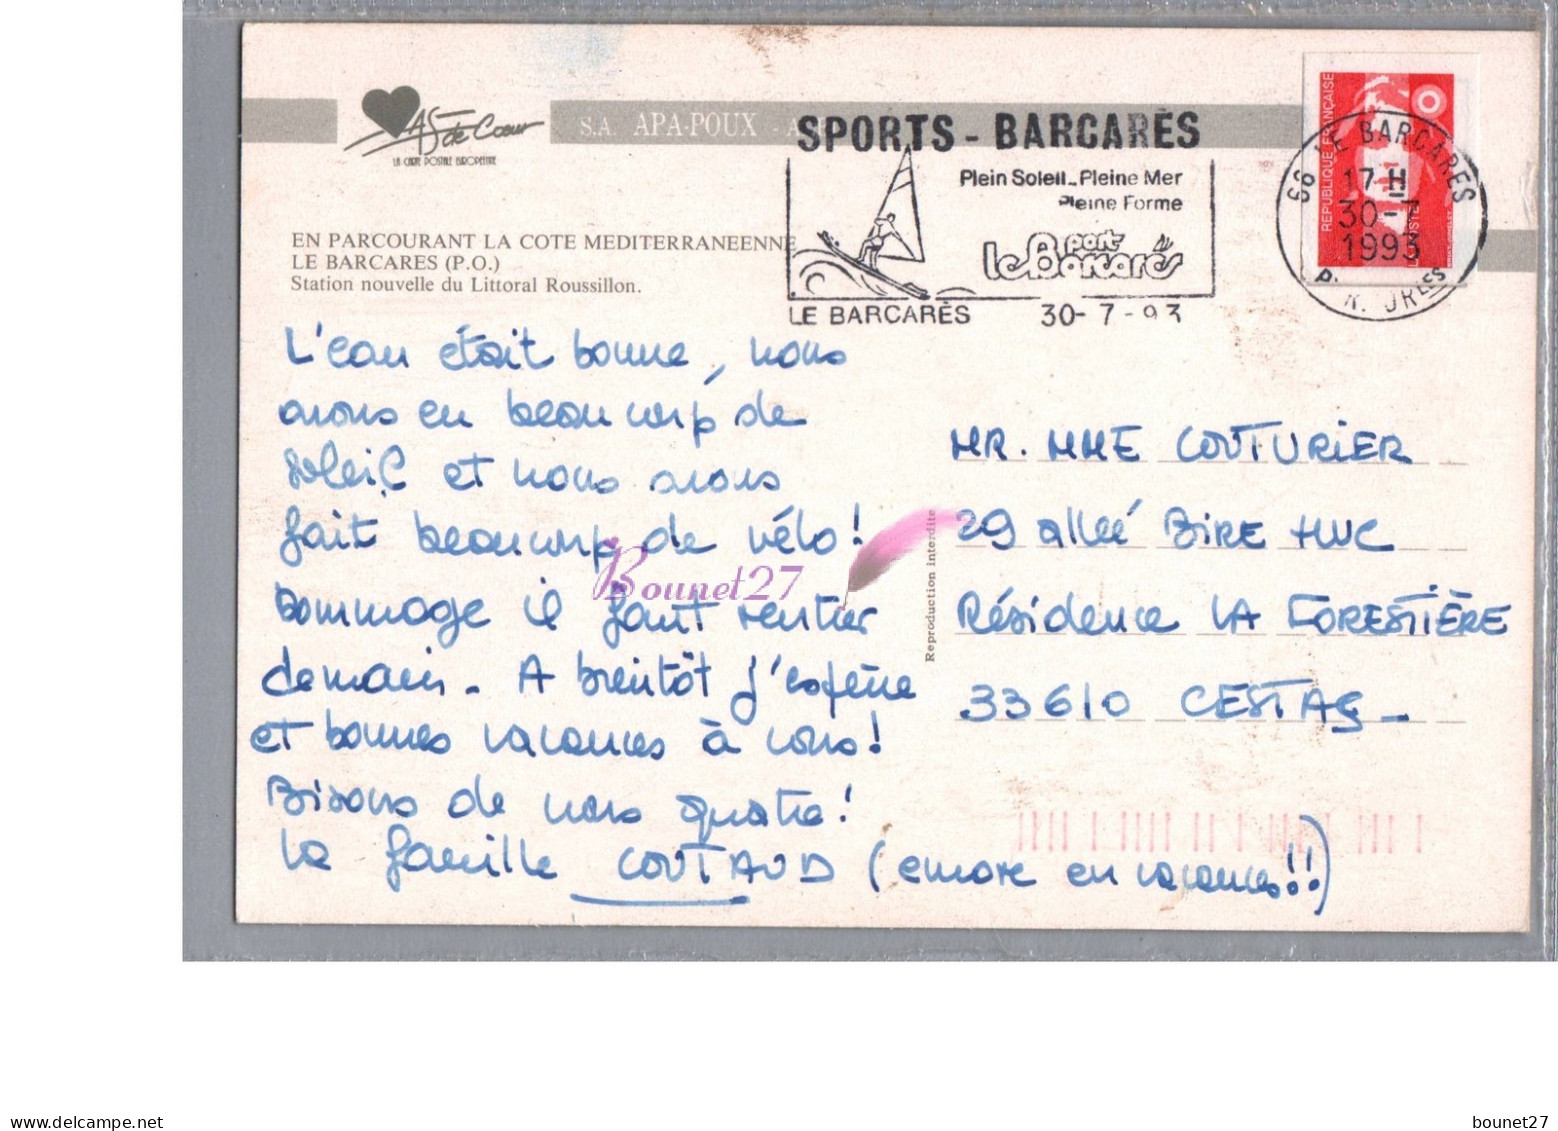 AS de Coeur
LA CARTE POSTALE EUROPEENNE
S.A. APA-POUX -
SPORTS - BARCARÈS
Plein Soleil - Pleine Mer
Pleine Forme
port
le Barcarès
LE BARCARÈS 30-7-93
66 LE BARCARES
17 H
30-7
1993
REPUBLIQUE FRANÇAISE
EN PARCOURANT LA COTE MEDITERRANEENNE
LE BARCARES (P.O.)
Station nouvelle du Littoral Roussillon.
L'eau était bonne, nous
avons eu beaucoup de
soleil et nous avons
fait beaucoup de vélo!
Dommage il faut rentrer
demain. A bientôt j'espère
et bonnes vacances à vous!
Bisous de nous quatre!
La famille COUTAUD (encore en vacances!!)
Reproduction interdite
MR. MME COUTURIER
29 allée BIRE HUC
Résidence LA FORESTIÈRE
33610 CESTAS -
Bounet27
www.delcampe.net
bounet27